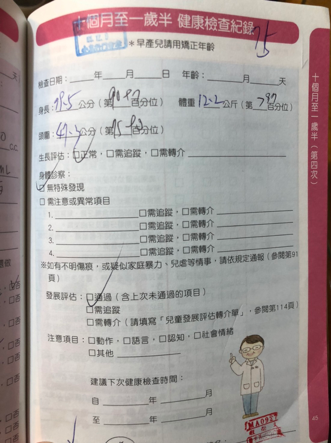 十個月至一歲半 健康檢查紀錄
＊早產兒請用矯正年齡
檢查日期：＿＿年＿＿月＿＿日 年齡：＿＿月＿＿天
身長：公分（第 百分位） 體重12.2公斤（第 >97百分位）
頭圍：公分（第 百分位）
生長評估：□正常，□需追蹤，□需轉介
身體診察：
□無特殊發現
□需注意或異常項目
1. □需追蹤，□需轉介
2. □需追蹤，□需轉介
3. □需追蹤，□需轉介
4. □需追蹤，□需轉介
※如有不明傷痕，或疑似家庭暴力、兒虐等情事，請依規定通報（參閱第91頁）
發展評估：□通過（含上次未通過的項目）
□需追蹤
□需轉介（請填寫「兒童發展評估轉介單」，參閱第114頁）
注意項目：□動作，□語言，□認知，□社會情緒
□其他
建議下次健康檢查時間：
自＿＿年＿＿月
至＿＿年＿＿月
十個月至一歲半（第四次）
MA092
45